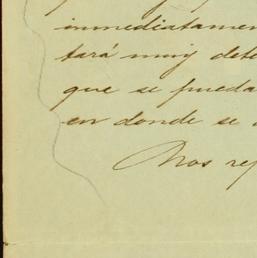 inmediatamen
tará muy dete
que se pueda
en donde se
Nos rep